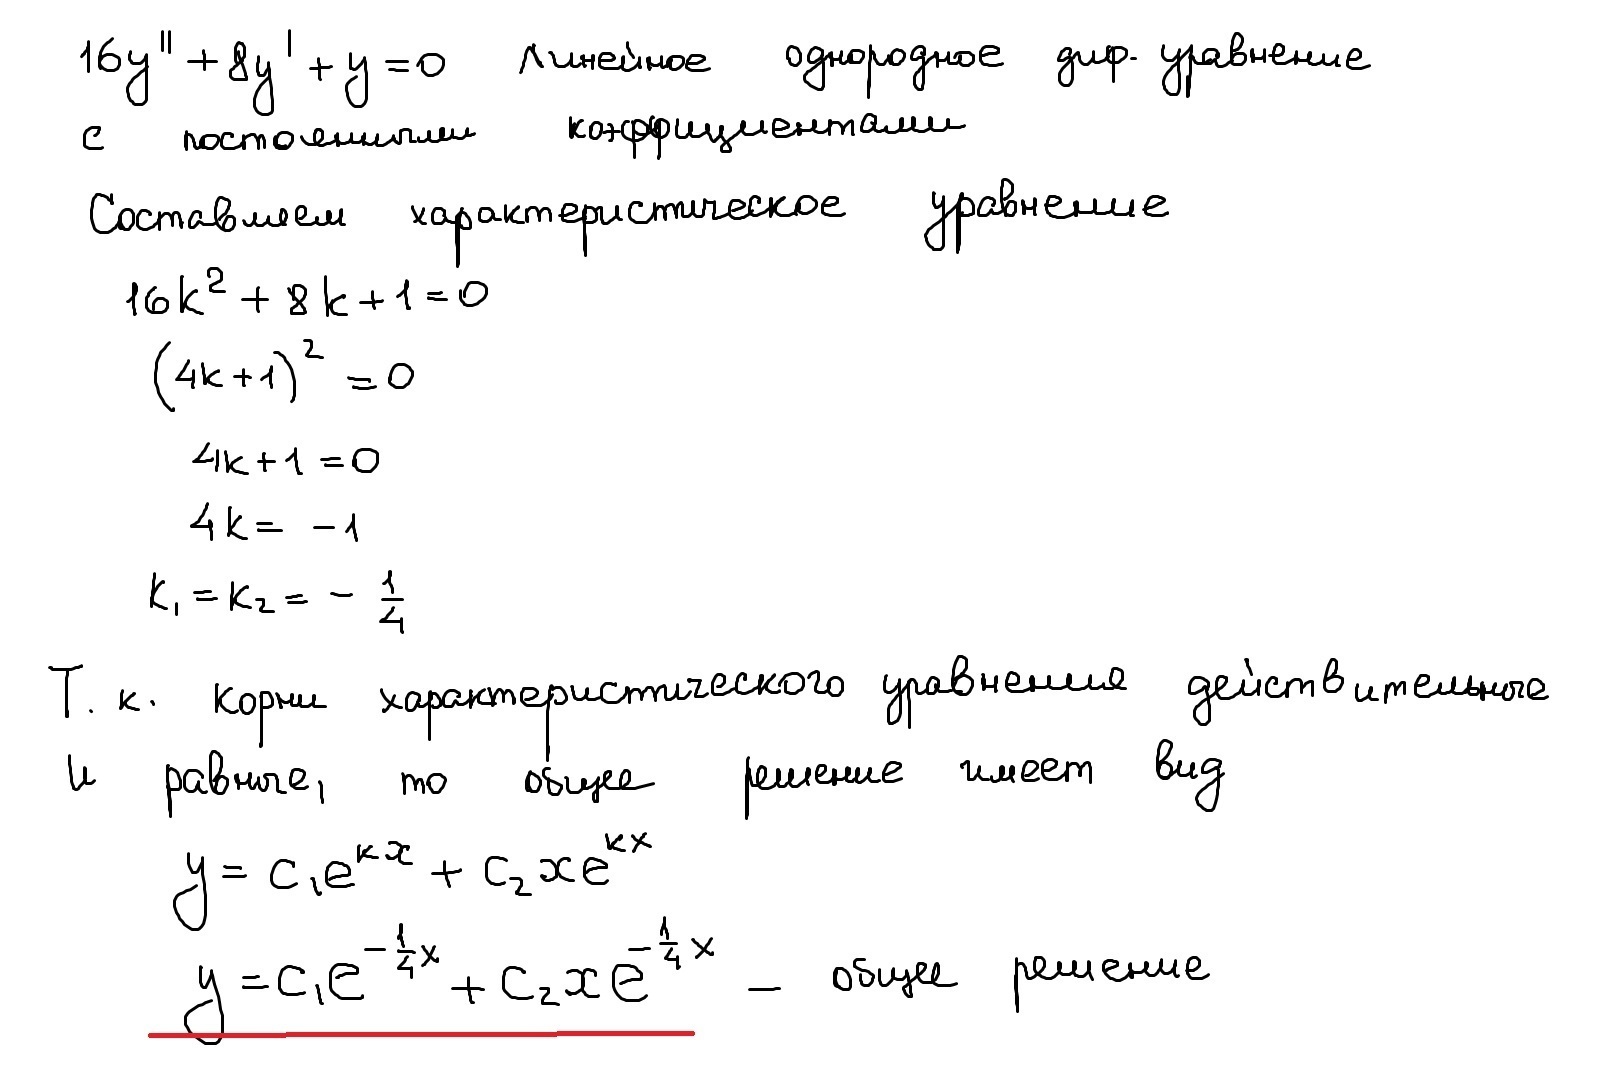 16y'' + 8y' + y = 0 Линейное однородное диф. уравнение
с постоянными коэффициентами
Составляем характеристическое уравнение
16k² + 8k + 1 = 0
(4k + 1)² = 0
4k + 1 = 0
4k = - 1
k₁ = k₂ = - 1/4
Т. к. корни характеристического уравнения действительные
и равные, то общее решение имеет вид
y = c₁e^{kx} + c₂xe^{kx}
y = c₁e^{-1/4 x} + c₂xe^{-1/4 x} – общее решение